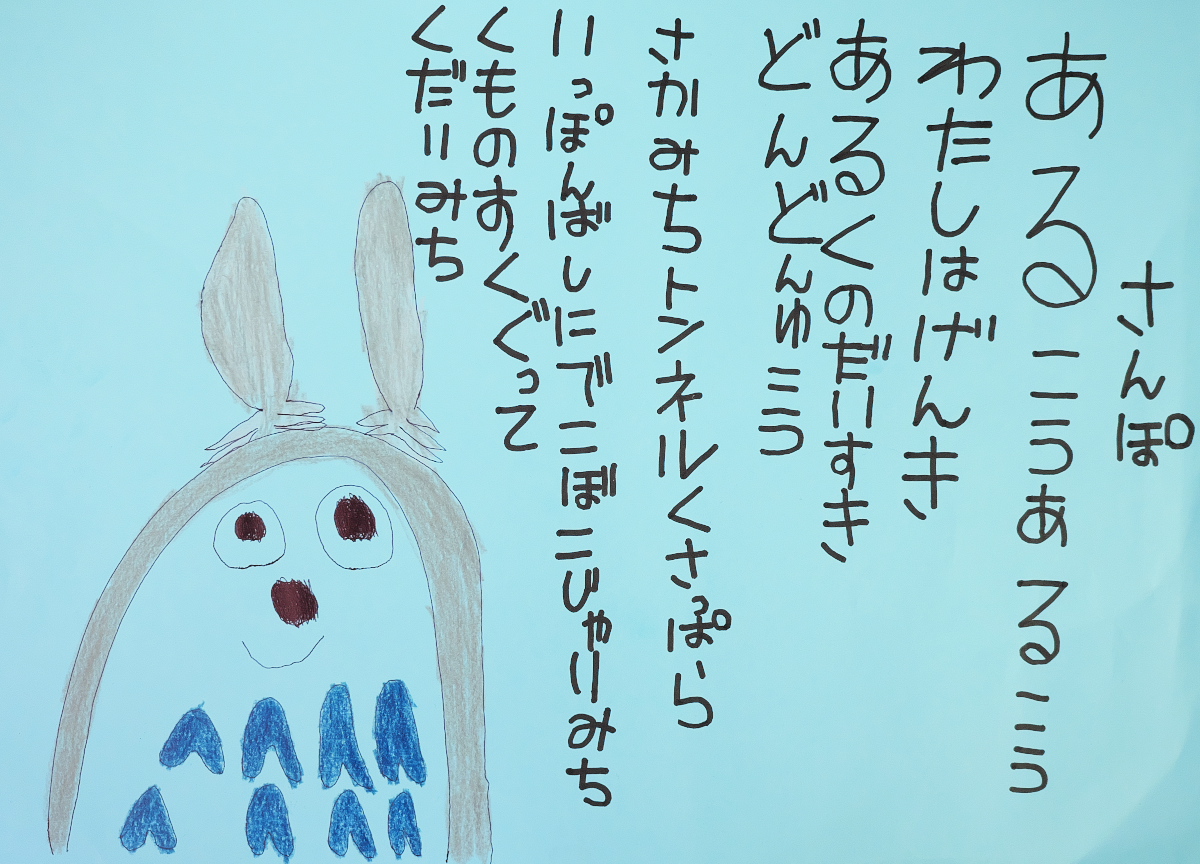 さんぽ
あるこうあるこう
わたしはげんき
あるくのだいすき
どんどんゆこう
さかみちトンネルくさっぽら
いっぽんばしにでこぼこじゃりみち
くものすくぐって
くだりみち